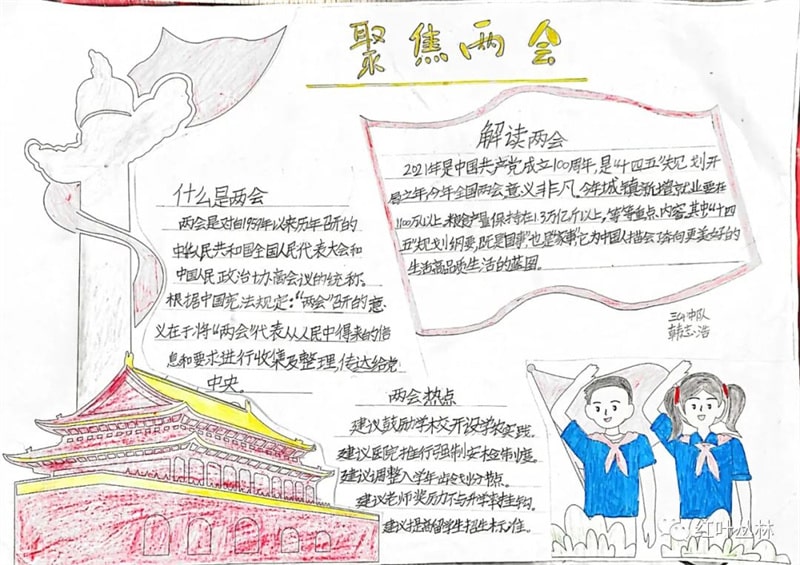 聚焦两会
什么是两会
两会是对自1959年以来历年召开的
中华人民共和国全国人民代表大会和
中国人民政治协商会议的统称。
根据中国宪法规定:“两会”召开的意
义在于将“两会”代表从人民中得来的信
息和要求进行收集及整理传达给党
中央。
解读两会
2021年是中国共产党成立100周年,是“十四五”规划开
局之年,今年全国两会意义非凡。今年城镇新增就业要在
1100万以上,粮食产量保持在1.3万亿斤以上,等等重点内容。其中“十四
五”规划纲要,既是国事,也是“家事”,它为中国人描绘了奔向更美好的
生活高品质生活的蓝图。
三(4)中队
韩志浩
两会热点
建议鼓励学校开设学农实践。
建议医院推行强制安检制度。
建议调整入学年龄划分节点。
建议老师奖励不与升学率挂钩。
建议提高留学生招生标准。
红叶丛林